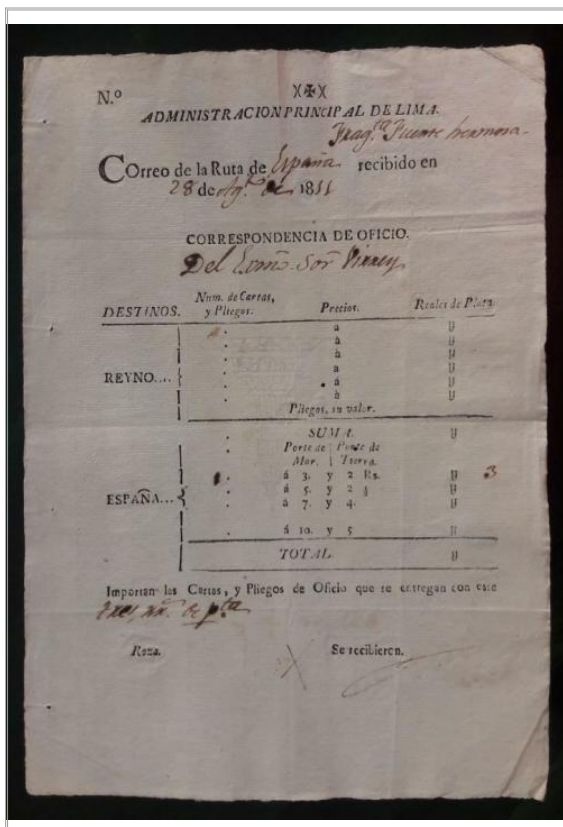 N.º
ADMINISTRACION PRINCIPAL DE LIMA.
Frag.ta Fuente hermosa
COrreo de la Ruta de España recibido en
28 de Ag.to de 1811
CORRESPONDENCIA DE OFICIO.
Del Exmo Sor Virrey
DESTINOS. Num. de Cartas, y Pliegos. Precios. Reales de Plata
a
à
à
a
REYNO.... á
à
Pliegos, su valor.
SUMA.
Porte de Mar. Porte de Tierra.
1 á 3. y 2 Rs. 3
ESPAÑA... á 5. y 2 ½
á 7. y 4.
á 10. y 5
TOTAL.
Importan las Cartas, y Pliegos de Oficio que se entregan con este
tres rr.s de pta
Roza. Se recibieron.